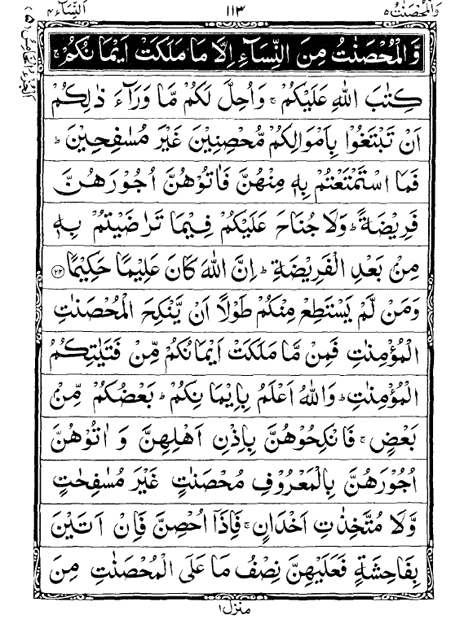 وَالْمُحْصَنٰتُ ٥
١١٣
اَلنِّسَآء ٤
وَّالْمُحْصَنٰتُ مِنَ النِّسَآءِ اِلَّا مَا مَلَكَتْ اَيْمَانُكُمْ ۚ
كِتٰبَ اللّٰهِ عَلَيْكُمْ ۚ وَاُحِلَّ لَكُمْ مَّا وَرَآءَ ذٰلِكُمْ
اَنْ تَبْتَغُوْا بِاَمْوَالِكُمْ مُّحْصِنِيْنَ غَيْرَ مُسٰفِحِيْنَ ؕ
فَمَا اسْتَمْتَعْتُمْ بِهٖ مِنْهُنَّ فَاٰتُوْهُنَّ اُجُوْرَهُنَّ
فَرِيْضَةً ؕ وَلَا جُنَاحَ عَلَيْكُمْ فِيْمَا تَرَاضَيْتُمْ بِهٖ
مِنْۢ بَعْدِ الْفَرِيْضَةِ ؕ اِنَّ اللّٰهَ كَانَ عَلِيْمًا حَكِيْمًا ﴿٢٤﴾
وَمَنْ لَّمْ يَسْتَطِعْ مِنْكُمْ طَوْلًا اَنْ يَّنْكِحَ الْمُحْصَنٰتِ
الْمُؤْمِنٰتِ فَمِنْ مَّا مَلَكَتْ اَيْمَانُكُمْ مِّنْ فَتَيٰتِكُمُ
الْمُؤْمِنٰتِ ؕ وَاللّٰهُ اَعْلَمُ بِاِيْمَانِكُمْ ؕ بَعْضُكُمْ مِّنْۢ
بَعْضٍ ۚ فَانْكِحُوْهُنَّ بِاِذْنِ اَهْلِهِنَّ وَاٰتُوْهُنَّ
اُجُوْرَهُنَّ بِالْمَعْرُوْفِ مُحْصَنٰتٍ غَيْرَ مُسٰفِحٰتٍ
وَّلَا مُتَّخِذٰتِ اَخْدَانٍ ۚ فَاِذَاۤ اُحْصِنَّ فَاِنْ اَتَيْنَ
بِفَاحِشَةٍ فَعَلَيْهِنَّ نِصْفُ مَا عَلَى الْمُحْصَنٰتِ مِنَ
منزل ١